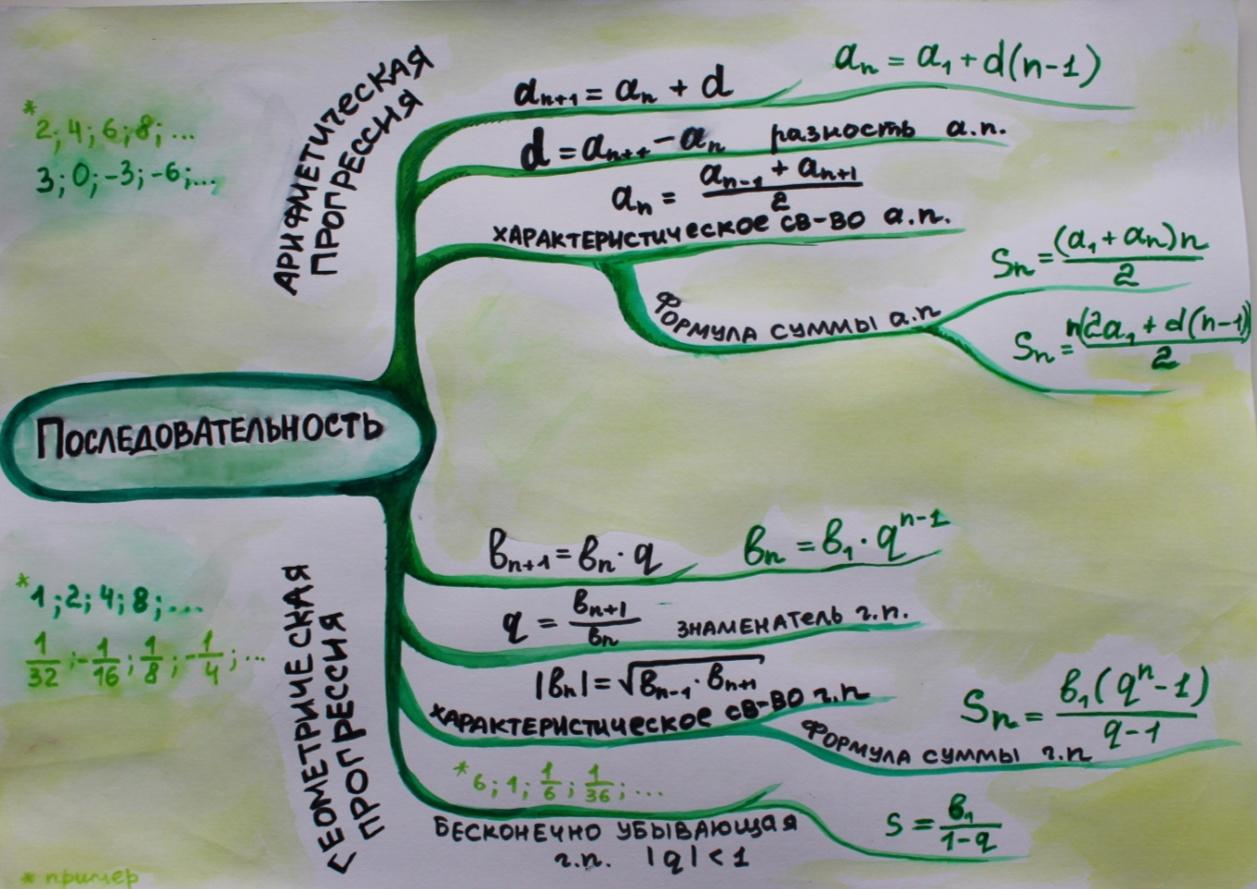 АРИФМЕТИЧЕСКАЯ
ПРОГРЕССИЯ
* 2; 4; 6; 8; ...
3; 0; -3; -6; ...
aₙ₊₁ = aₙ + d
aₙ = a₁ + d(n-1)
d = aₙ₊₁ - aₙ разность а.п.
aₙ = (aₙ₋₁ + aₙ₊₁)/2
ХАРАКТЕРИСТИЧЕСКОЕ СВ-ВО а.п.
ФОРМУЛА СУММЫ а.п
Sₙ = (a₁ + aₙ)n/2
Sₙ = n(2a₁ + d(n-1)/2
ПОСЛЕДОВАТЕЛЬНОСТЬ
ГЕОМЕТРИЧЕСКАЯ
ПРОГРЕССИЯ
* 1; 2; 4; 8; ...
1/32; -1/16; 1/8; -1/4; ...
вₙ₊₁ = вₙ · q
вₙ = в₁ · qⁿ⁻¹
q = вₙ₊₁/вₙ ЗНАМЕНАТЕЛЬ г.п.
|вₙ| = √(вₙ₋₁ · вₙ₊₁)
ХАРАКТЕРИСТИЧЕСКОЕ СВ-ВО г.п
ФОРМУЛА СУММЫ г.п
Sₙ = в₁(qⁿ-1)/(q-1)
* 6; 1; 1/6; 1/36; ...
БЕСКОНЕЧНО УБЫВАЮЩАЯ
г.п. |q| < 1
S = в₁/(1-q)
* пример